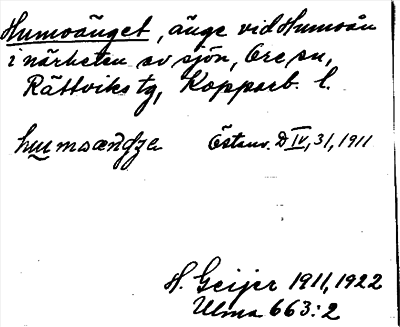 Humoänget, änge vid Humoån
i närheten av sjön, Ore sn,
Rättviks tg, Kopparb. l.
Östanv. D IV, 31, 1911
H. Geijer 1911, 1922
Ulma 663:2